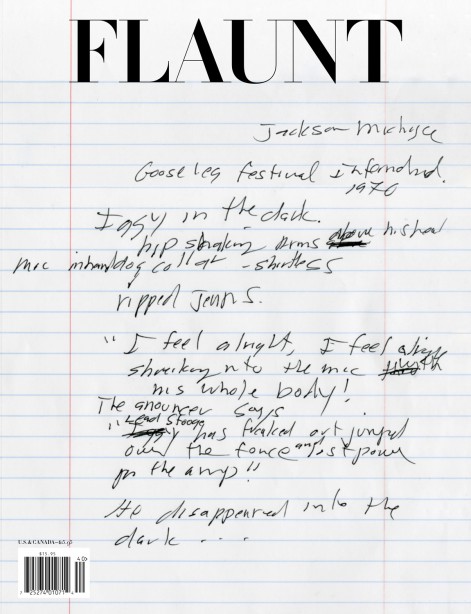 FLAUNT
Jackson
Goose leg festival
1970
Iggy in the dark.
hip shaking arms above his head
mic in hand dog collar - shirtless
ripped jeans.
"I feel alright, I feel alright
shrieking nto the mic with
his whole body!
The anouncer says
"Lead stooge
Iggy has freaked out jumped
over the fence and lost power
on the amp!"
He disappeared into the
dark ...
U.S & CANADA
$15.95
40
7 25274 01071 4